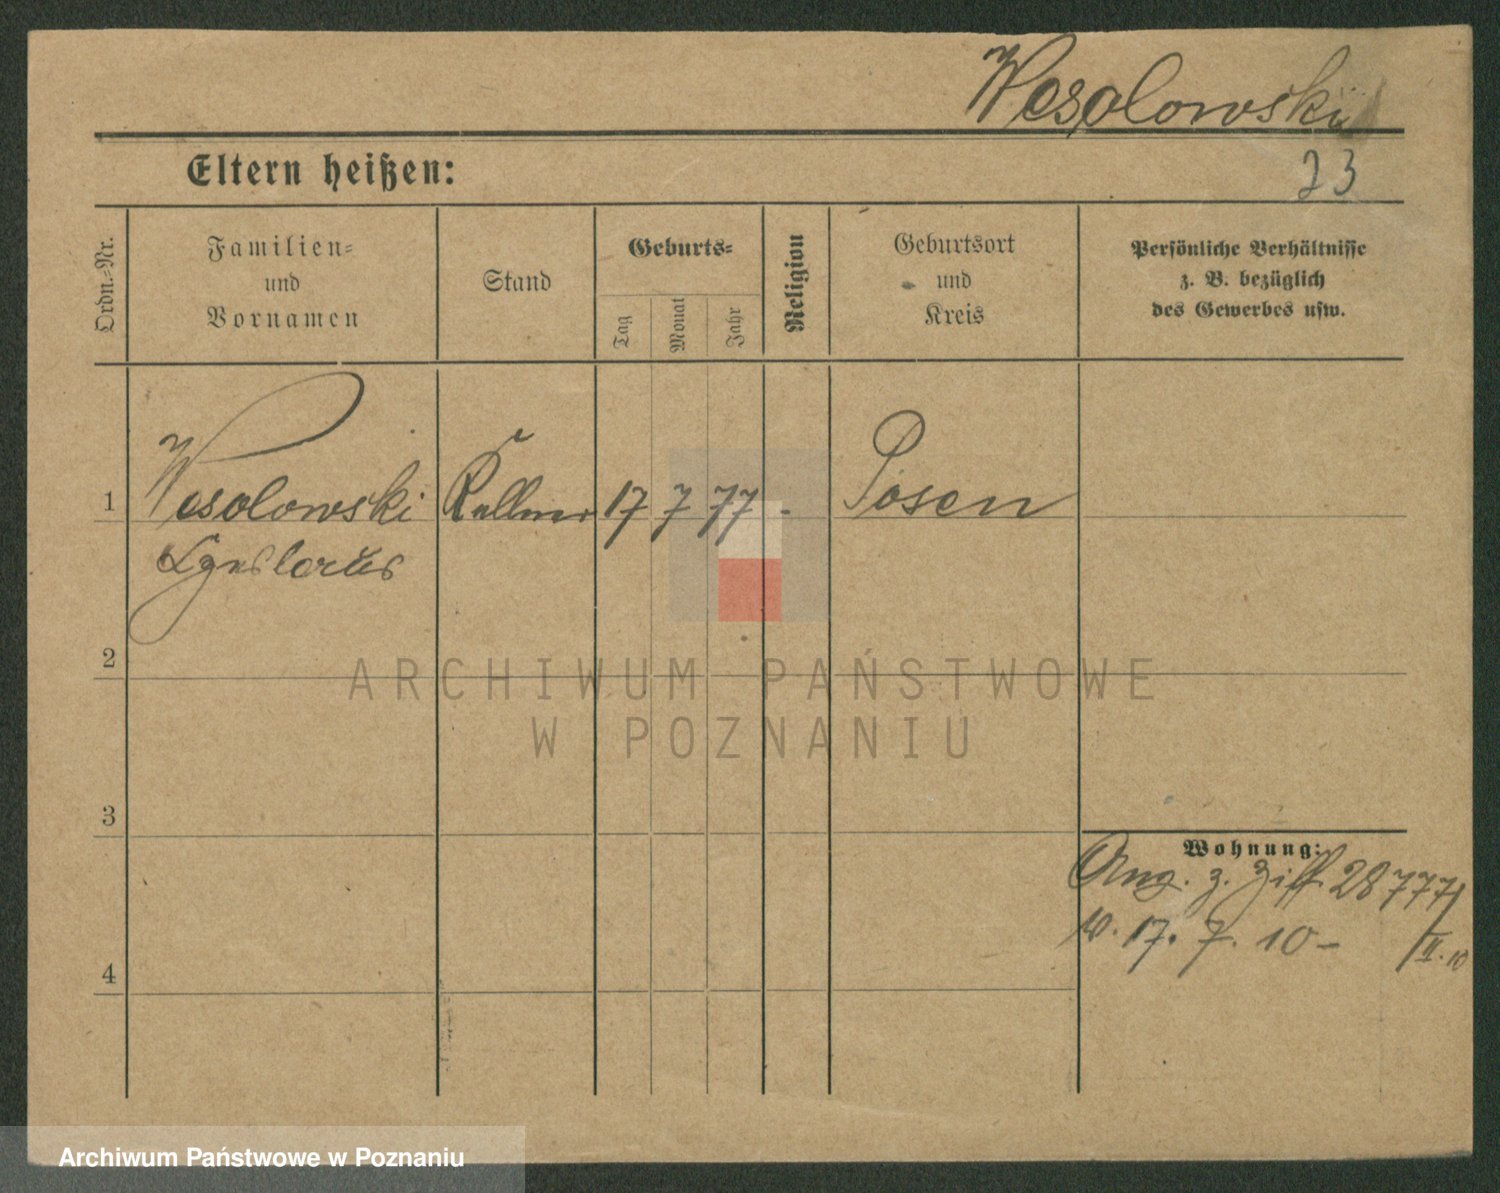 Wesolowski
Eltern heißen:
23
Ordn.-Nr.
Familien-
und
Vornamen
Stand
Geburts-
Tag
Monat
Jahr
Religion
Geburtsort
und
Kreis
Persönliche Verhältnisse
z. B. bezüglich
des Gewerbes usw.
1 Wesolowski Kellner 17 7 77 - Posen
2
3
4
Wohnung:
Ang. z. Ziff. 28777/
w. 17. 7. 10 - /II. 10
ARCHIWUM PAŃSTWOWE
W POZNANIU
Archiwum Państwowe w Poznaniu